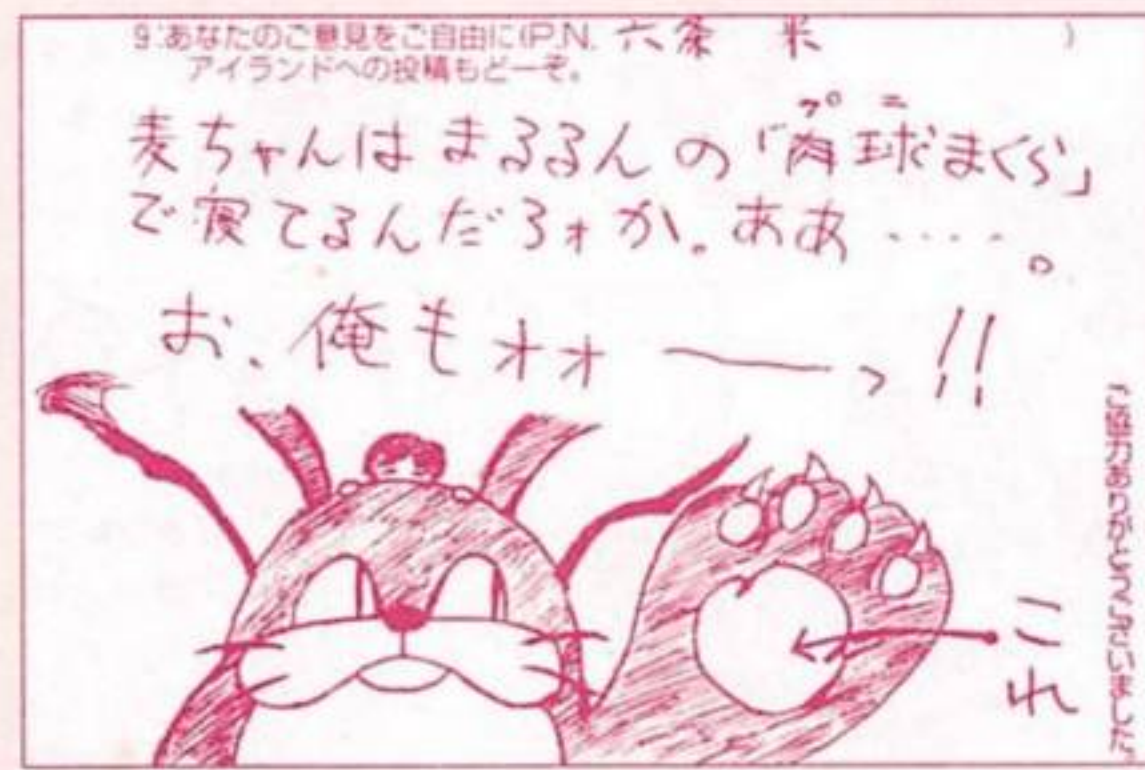 9.あなたのご意見をご自由に(P.N. 六条 米 )
アイランドへの投稿もどーぞ。
プニ
麦ちゃんは まるるんの「肉球まくら」
で寝てるんだろォか。ああ‥‥。
お、俺もォォーーっ!!
これ
ご協力ありがとうございました